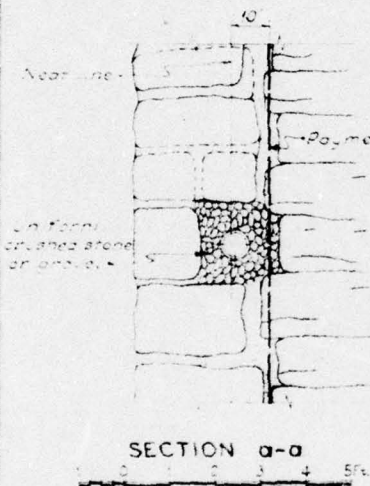 10"
Neat line
Payme
Uniform
crushed stone
or gravel
SECTION a-a
1 0 1 2 3 4 5Ft.